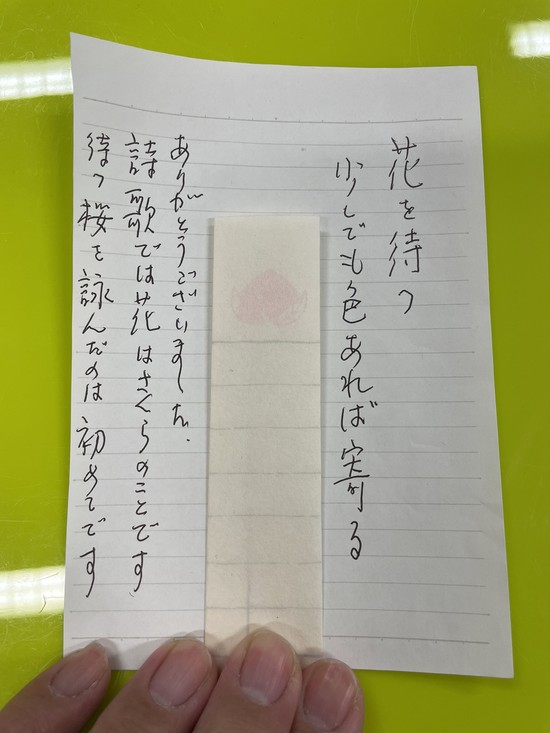 花を待つ
少しでも色あれば寄る
ありがとうございました.
詩歌では花はさくらのことです
待つ桜を詠んだのは初めてです